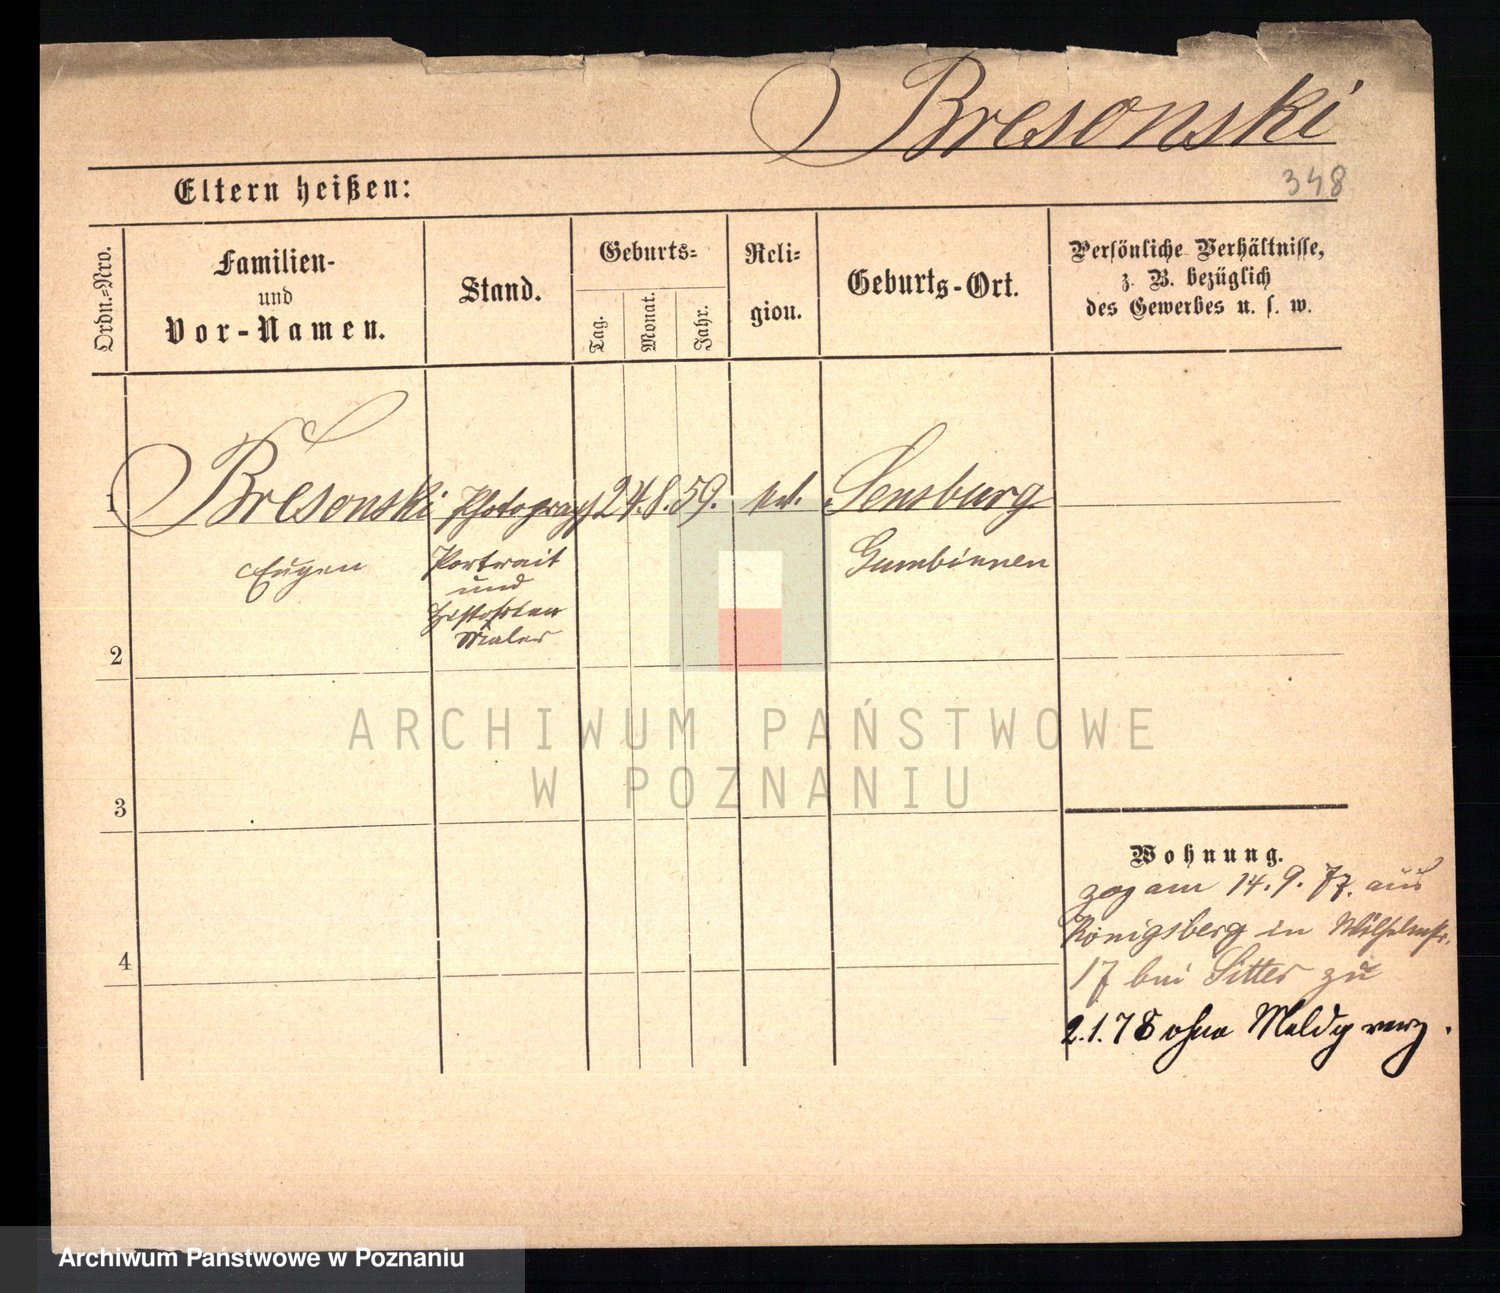 Bresonski
348
Eltern heißen:
Ordn.-Nro.
Familien-
und
Vor-Namen.
Stand.
Geburts-
Tag.
Monat.
Jahr.
Reli-
gion.
Geburts-Ort.
Persönliche Verhältnisse,
z. B. bezüglich
des Gewerbes u. s. w.
1 Bresonski Photograph 24. 8. 59. Sensburg
Eugen Portrait Gumbinnen
und
Historien
Maler
2
3
4
Wohnung.
zog am 14. 9. 77. aus
Königsberg in Wilhelmstr.
17 bei Sitter zu
2. 1. 78 ohne Meldg verz.
ARCHIWUM PAŃSTWOWE
W POZNANIU
Archiwum Państwowe w Poznaniu